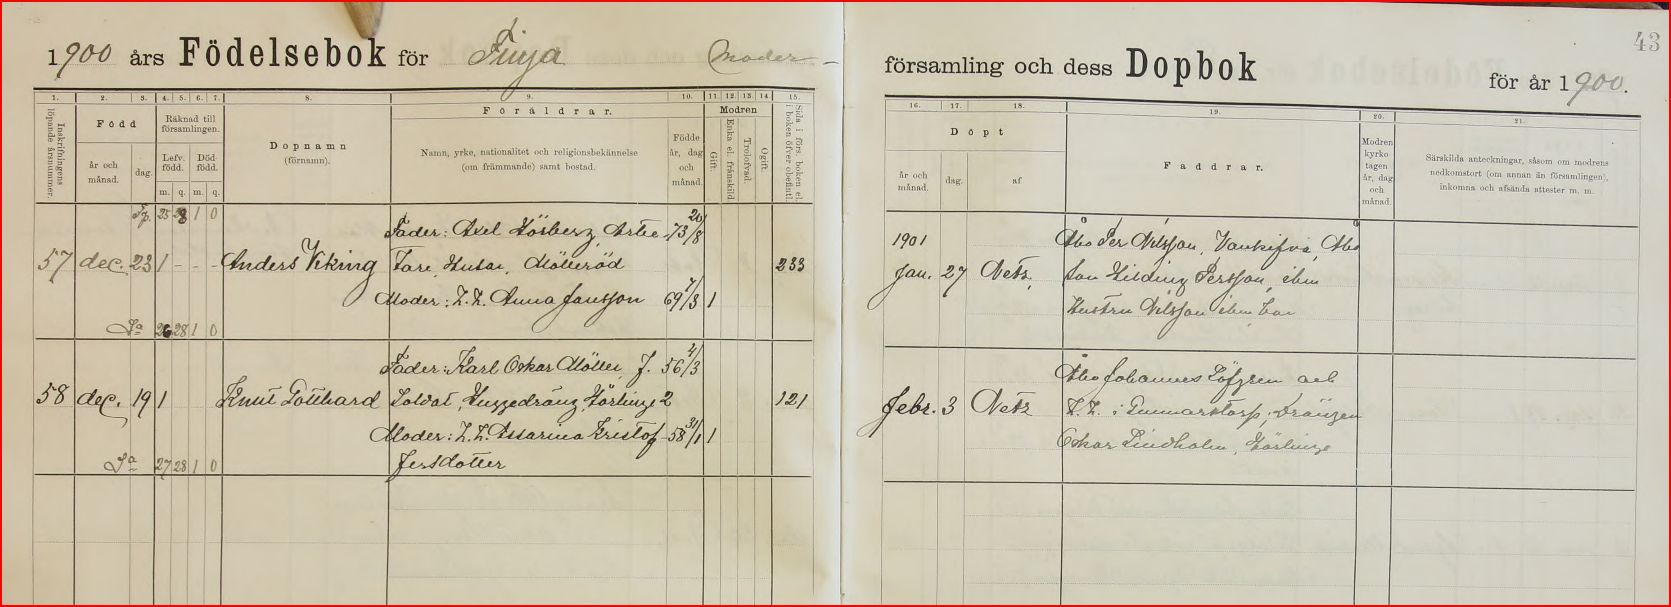 1900 års Födelsebok för Finja
Moder
församling och dess Dopbok för år 1900.
43
1. 2. 3. 4. 5. 6. 7. 8. 9. 10. 11 12 13 14 15.
Inskrifningens löpande årsnummer.
Född
år och månad.
dag.
Räknad till församlingen.
Lefv. född.
Död- född.
m. q. m. q.
Dopnamn
(förnamn).
Föräldrar.
Namn, yrke, nationalitet och religionsbekännelse
(om främmande) samt bostad.
Födde år, dag och månad.
Modren
Gift.
Enka el. frånskild.
Trolofvad.
Ogift.
Sida i förs. boken el. i boken öfver obefintl.
16. 17. 18. 19. 20. 21.
Döpt
år och månad.
dag.
af
Faddrar.
Modren kyrkotagen år, dag och månad.
Särskilda anteckningar, såsom om modrens
nedkomstort (om annan än församlingen),
inkomna och afsända attester m. m.
Tr. 25 28 1 0
Fader: Axel Hörberg, Arbe- 73 20/8
57 dec. 23 1 - - - Anders Viking tare, Husar, Mölleröd 233
Moder: H. H. Anna Jansson 69 7/3 1
Sa 26 28 1 0
Fader: Karl Oskar Möller, f. 56 4/3
58 dec. 19 1 Knut Gotthard Soldat, Huggedräng, Hörlinge 2 121
Moder: H. H. Assarina Kristof- 58 31/1 1
fersdotter
Sa 27 28 1 0
1901 Åbo Per Nilsson, Vankifva, Åbo
Jan. 27 Netz, Hilding Persson, ibm
Hustru Nilsson ibm bar
Åbo Johannes Löfgren och
febr. 3 Netz H. H. i Gunnarstorp; drängen
Oskar Lindholm, Hörlinge